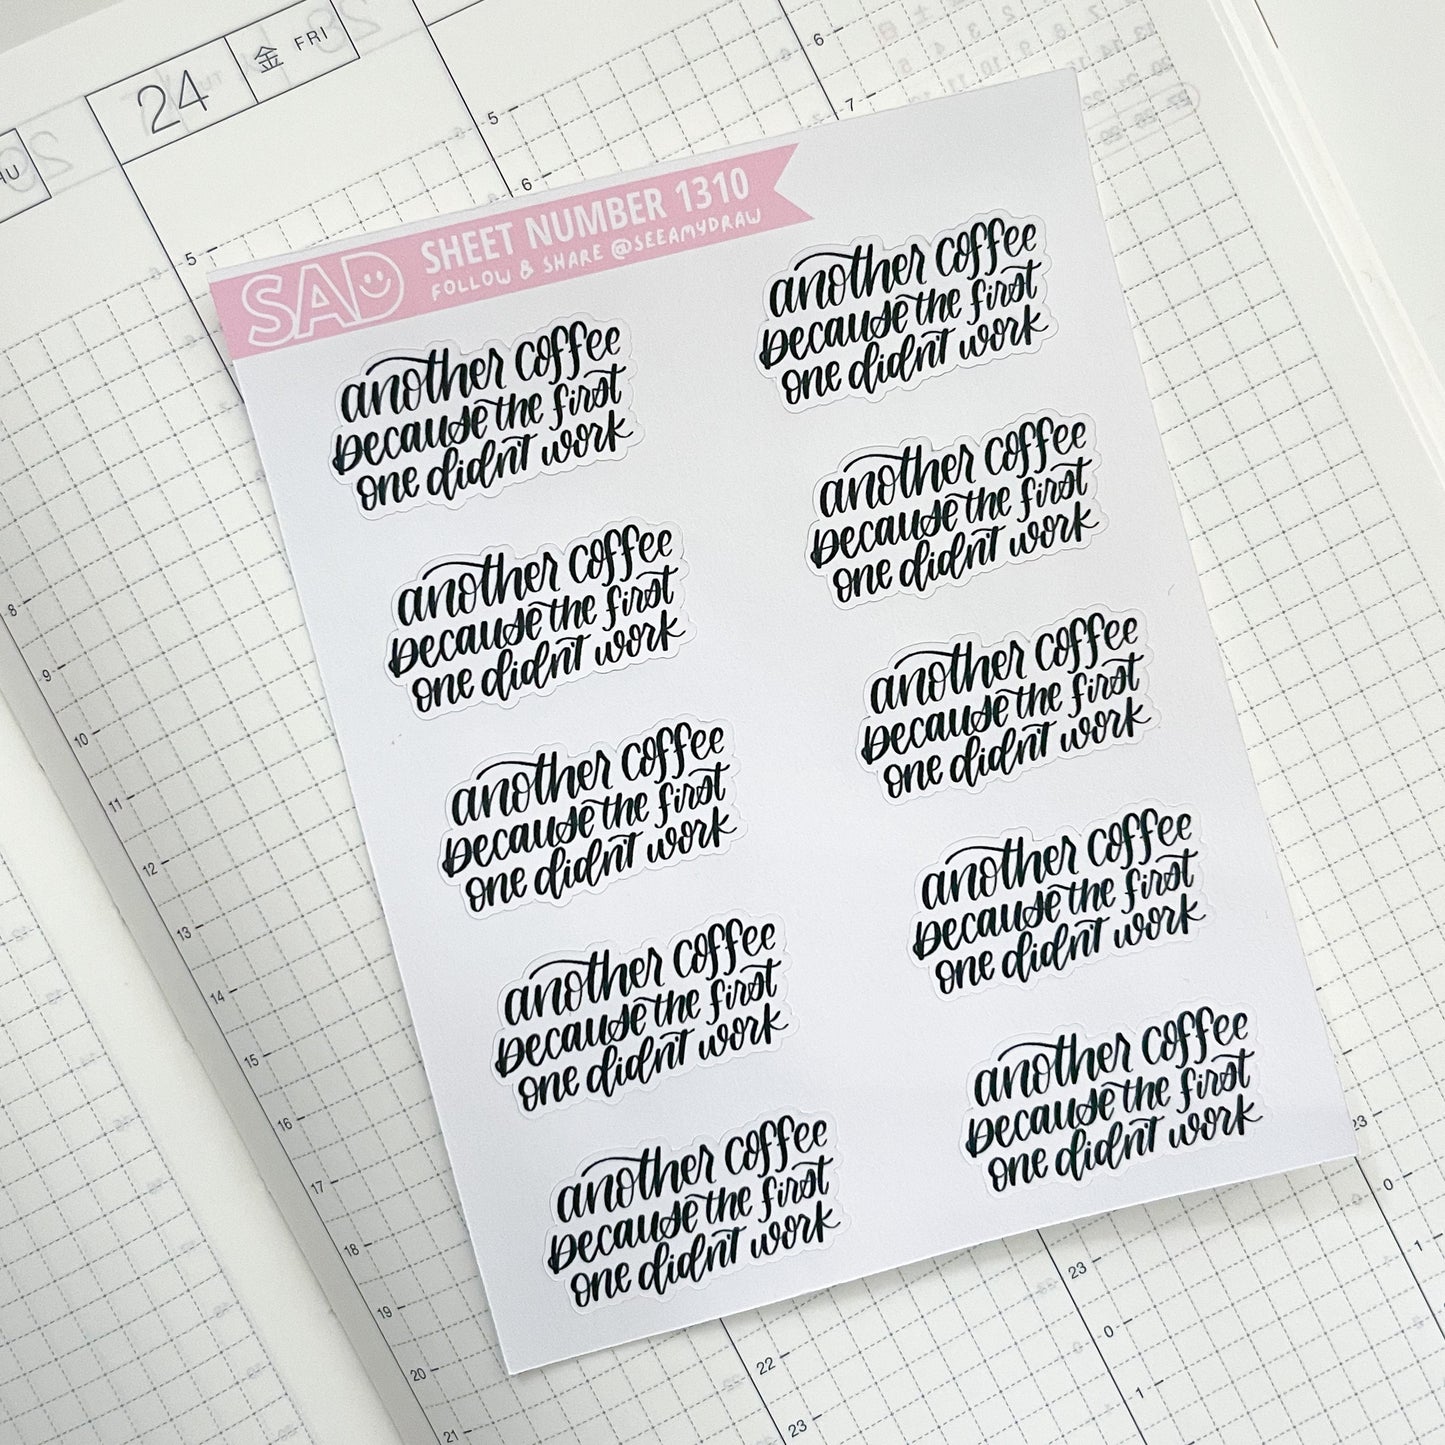 24 金 FRI
SAD
SHEET NUMBER 1310
FOLLOW & SHARE @SEEAMYDRAW
another coffee
because the first
one didn't work
another coffee
because the first
one didn't work
another coffee
because the first
one didn't work
another coffee
because the first
one didn't work
another coffee
because the first
one didn't work
another coffee
because the first
one didn't work
another coffee
because the first
one didn't work
another coffee
because the first
one didn't work
another coffee
because the first
one didn't work
another coffee
because the first
one didn't work
5
6
7
5
6
5
8
9
10
11
12
13
14
15
16
17
18
19
20
21
22
23
23
0
1
23
0
1